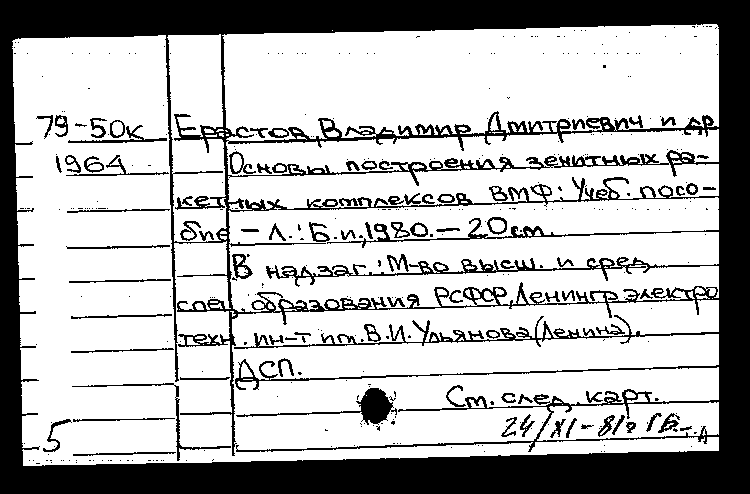 79-50к Ерастов, Владимир Дмитриевич и др
1964 Основы построения зенитных ра-
кетных комплексов ВМФ: Учеб. посо-
бие. - Л.: Б.и, 1980. - 20см.
В надзаг.: М-во высш. и сред.
спец. образования РСФСР, Ленингр электро
техн. ин-т им. В.И. Ульянова (Ленина).
ДСП.
Ст. след. карт.
5 24/XI-81г